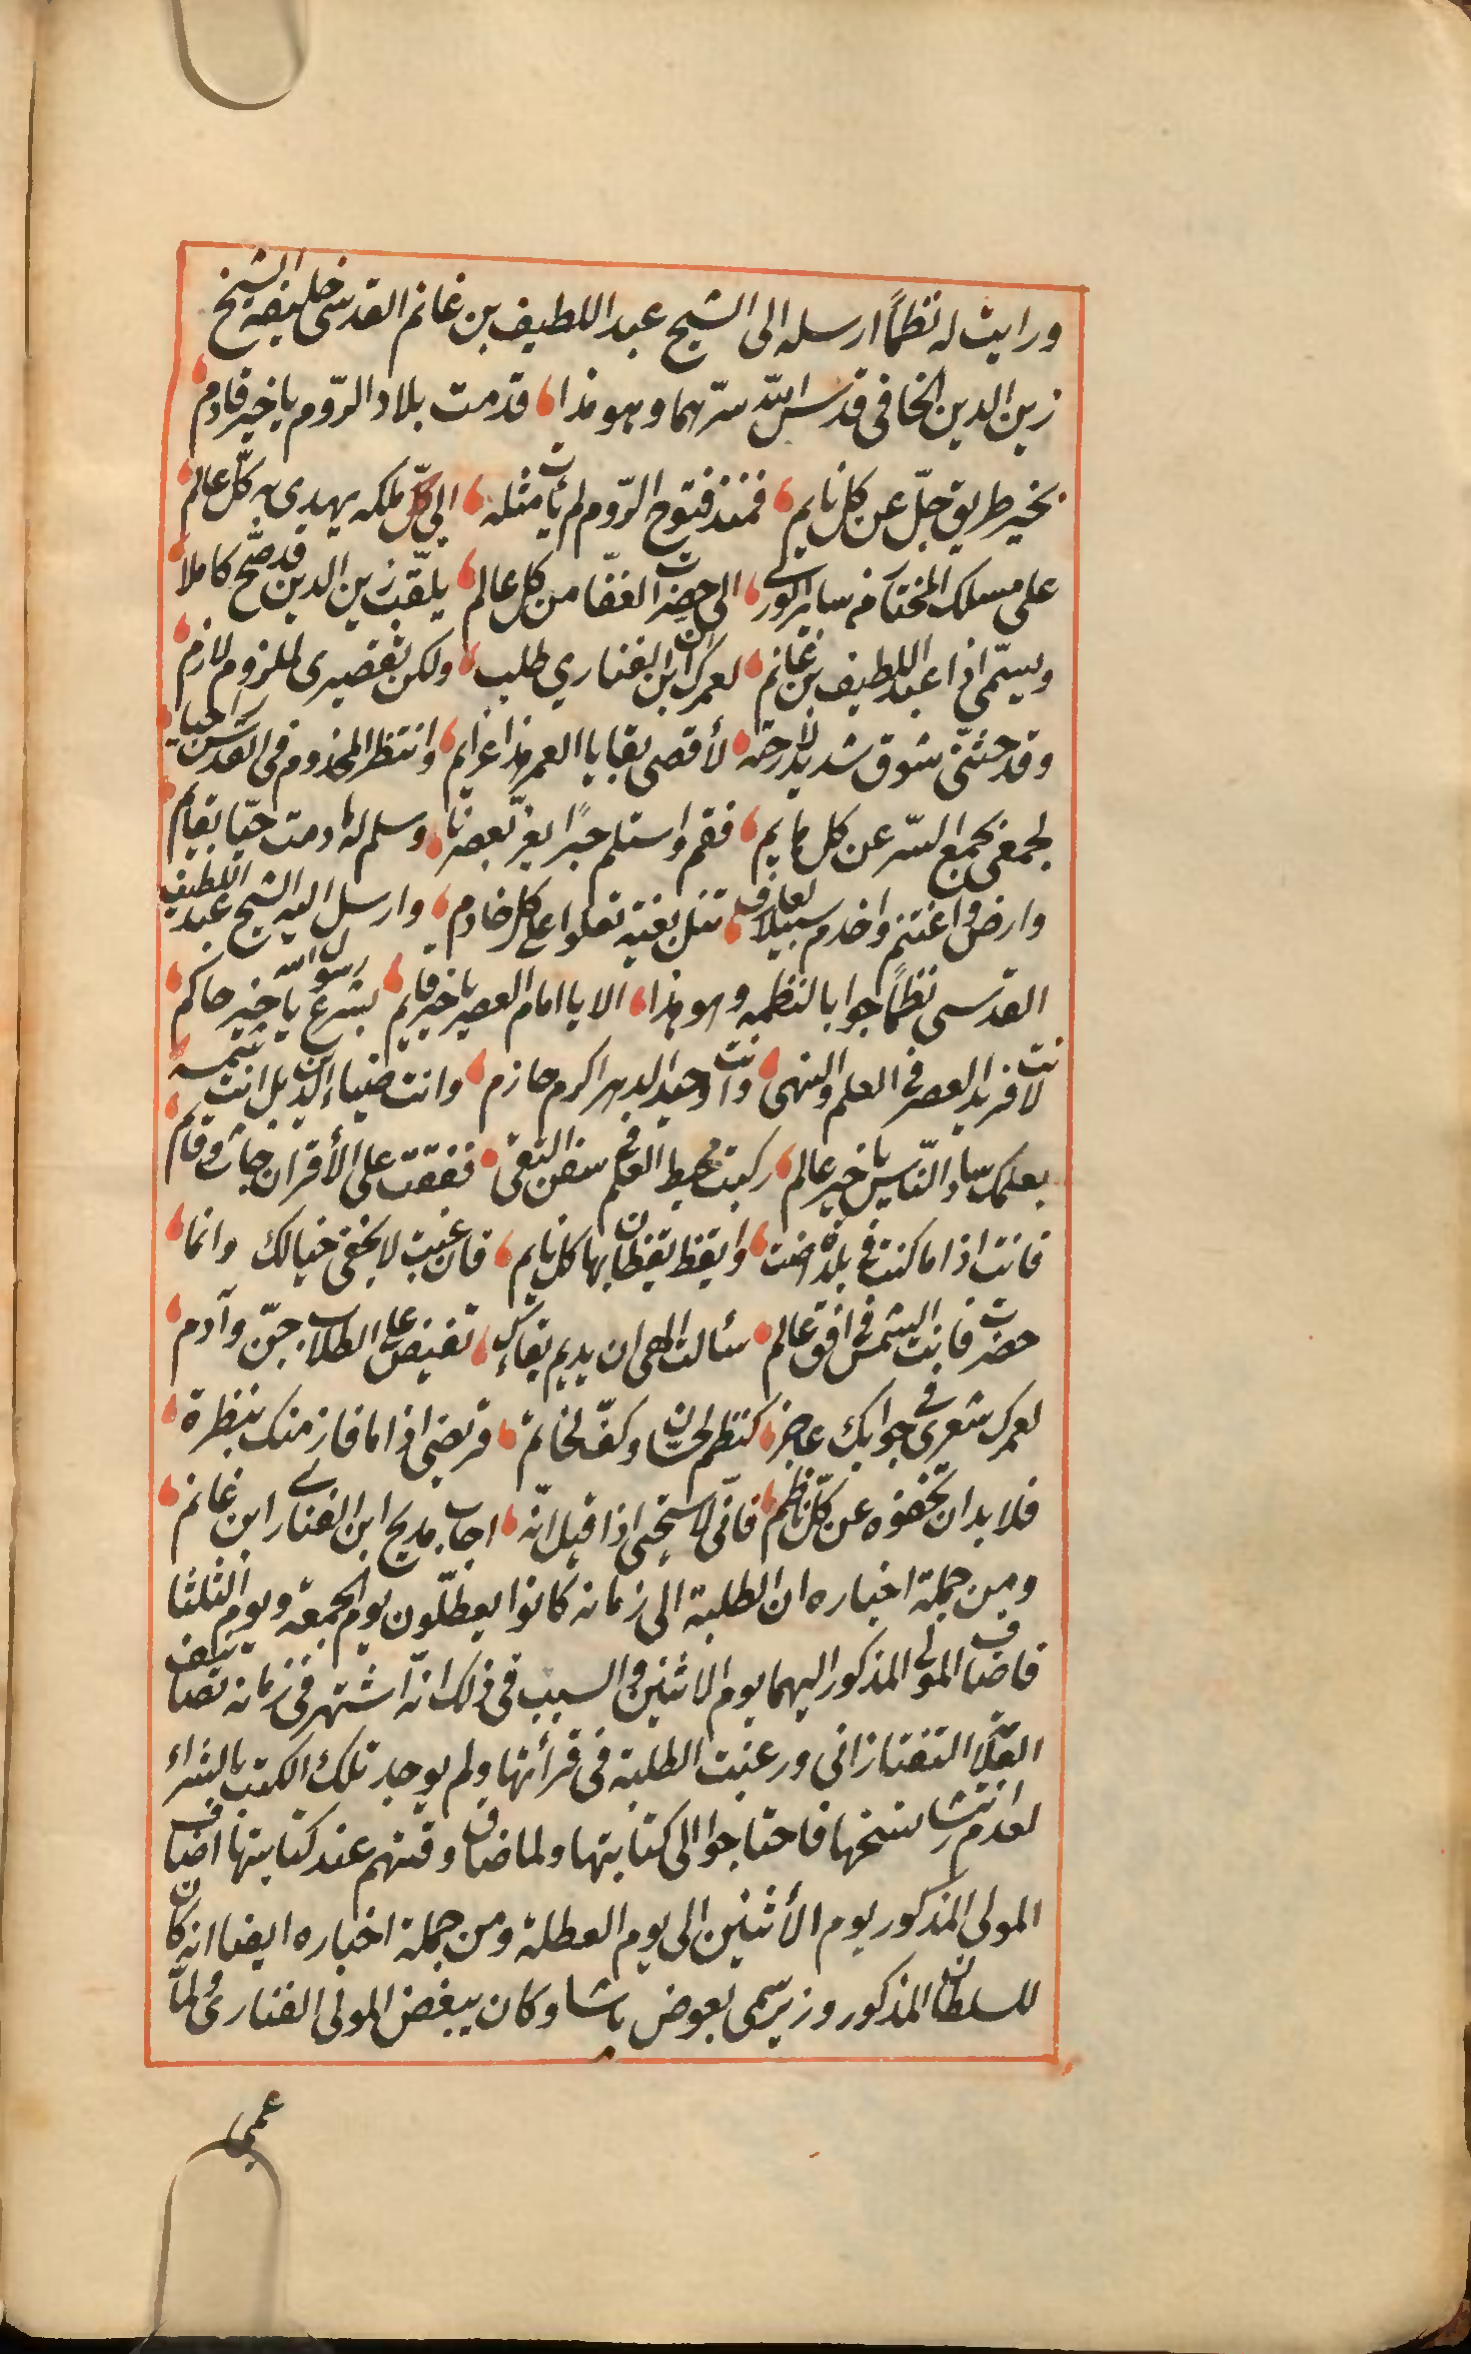 ورايت له نظمًا ارسله الى الشيخ عبد اللطيف بن غانم القدسى خليفة الشيخ
زين الدين الخافى قدس الله سرّهما وهو هذا، قدمت بلاد الرّوم يا خير قادم،
بخير طريق جلّ عن كل نايم، فمنذ فتوح الرّوم لم يأت مثله، الى كلّ ملكه يهدى به كلّ عالم،
على مسلك المختار من ساير الورى، الى حضرت الغفّار من كل عالم، يلقّب زين الدين قد صحّ كاملا،
ويسمّى اذا عبد اللطيف بن غانم، لعمرك ان ابن الفنارى طلب، ولكن تقصيرى للملزوم لازم،
وقد حثّنى شوق شديد لارحته، لأقصى بقايا العمر هذا عزايم، وانتظر المخدوم فى القدس راحيا،
لجمعى بجمع السّر عن كل نايم، فقم واستلم حبرًا يعزّ بعصرنا، وسلم له ما دمت حيّا بقايم،
وارض واغتنم واخدم سبيلا لعارف، تنل بغية تعلوا على كل خادم، وارسل اليه الشيخ عبد اللطيف
القدسى نظمًا جوابا لنظمه وهو هذا، الا يا امام العصر يا خير قايم، بشرع رسول الله يا خير حاكم،
لانت فريد العصر فى العلم والنهى، وانت وحيد الدهر اكرم حازم، وانت ضياء الدين بل انت شمسه،
بعلمك ساد النّاس يا خير عالم، ركبت محيط العلم فى سفن التقى، ففقت على الأقران جاث وقايم،
فانت اذا ما كنت فى بلدة اضت، وايقظ يقظان بها كل نايم، فان غبت لا يخفى خيالك وانما،
حضرت فانت الشمس فى افق عالم، سألت الهى ان يديم بقاءكم، تفيض على الطلاب جنّ وآدم،
لعمرك شعرى فى جوابك عاجز، كنظم لحسّان وكفّ لخاتم، قريضى اذا ما فاز منك بنظرة،
فلا بد ان تخفوه عن كلّ ناظم، فانّى لاستحيى اذا قيل انّه، اجاب مديح ابن الفنارى ابن غانم،
ومن جملة اخباره ان الطلبة الى زمانه كانوا يعطّلون يوم الجمعة ويوم الثلثا
فاضاف المولى المذكور اليهما يوم الاثنين والسبب فى ذلك انّه اشتهر فى زمانه تصانيف
العلّامة التفتازانى ورغبت الطلبة فى قرأتها ولم يوجد تلك الكتب بالشراء
لعدم انتشار نسخها فاحتاجوا الى كتابتها ولما ضاق وقتهم عند كتابتها اضاف
المولى المذكور يوم الأثنين الى يوم العطلة ومن جملة اخباره ايضا انه كان
للسلطان المذكور وزير سمى بعوض باشا وكان يبغض المولى الفنارى ولمّا
عمى